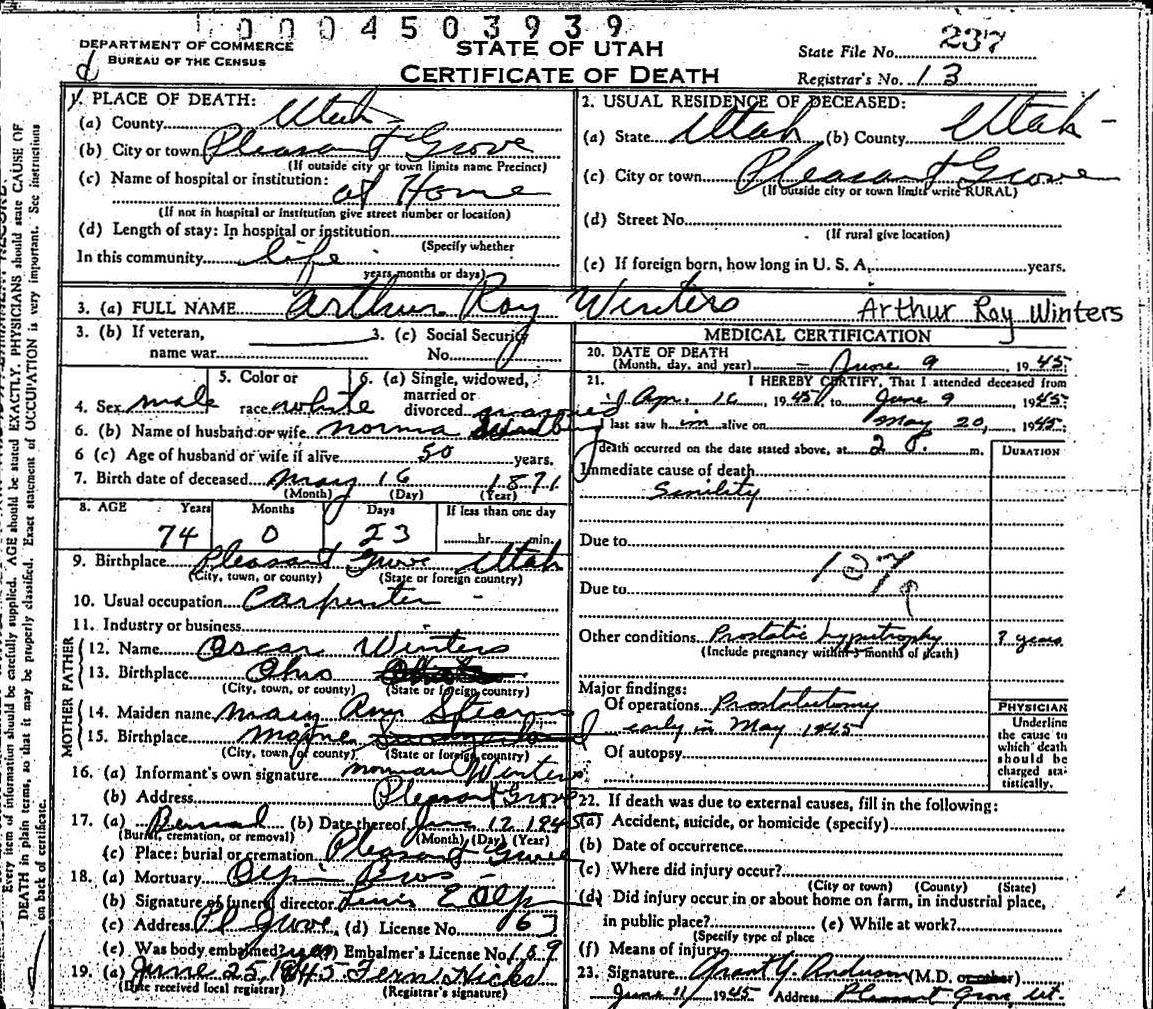 1 0 0 0 4 5 0 3 9 3 9
DEPARTMENT OF COMMERCE
BUREAU OF THE CENSUS
STATE OF UTAH
CERTIFICATE OF DEATH
State File No. 237
Registrar's No. 13
1. PLACE OF DEATH:
(a) County Utah
(b) City or town Pleasant Grove
(If outside city or town limits name Precinct)
(c) Name of hospital or institution:
at Home
(If not in hospital or institution give street number or location)
(d) Length of stay: In hospital or institution
(Specify whether
In this community life
years months or days)
2. USUAL RESIDENCE OF DECEASED:
(a) State Utah (b) County Utah
(c) City or town Pleasant Grove
(If outside city or town limits write RURAL)
(d) Street No.
(If rural give location)
(e) If foreign born, how long in U. S. A. years.
3. (a) FULL NAME Arthur Roy Winters Arthur Roy Winters
3. (b) If veteran,
name war
3. (c) Social Security
No.
4. Sex male
5. Color or
race white
6. (a) Single, widowed,
married or
divorced married
6. (b) Name of husband or wife Norma
6 (c) Age of husband or wife if alive 50 years.
7. Birth date of deceased May 16 1871
(Month) (Day) (Year)
8. AGE Years Months Days If less than one day
74 0 23 hr. min.
9. Birthplace Pleasant Grove Utah
(City, town, or county) (State or foreign country)
10. Usual occupation Carpenter
11. Industry or business
FATHER
12. Name Oscar Winters
13. Birthplace Ohio
(City, town, or county) (State or foreign country)
MOTHER
14. Maiden name Mary Ann Stearns
15. Birthplace Mayne
(City, town, or county) (State or foreign country)
16. (a) Informant's own signature Norman Winters
(b) Address Pleasant Grove
17. (a) Berual (b) Date thereof June 12 1945
(Burial, cremation, or removal) (Month) (Day) (Year)
(c) Place: burial or cremation Pleasant Grove
18. (a) Mortuary Olpin Bros
(b) Signature of funeral director Lewis E Olpin
(c) Address Pl Grove (d) License No. 63
(e) Was body embalmed? yes (f) Embalmer's License No. 189
19. (a) June 25, 1945 Fern Hicks
(Date received local registrar) (Registrar's signature)
MEDICAL CERTIFICATION
20. DATE OF DEATH
(Month, day, and year) June 9 1945
21. I HEREBY CERTIFY, That I attended deceased from
Apr. 16, 1945, to June 9 1945
I last saw h im alive on May 20, 1945
death occurred on the date stated above, at 2 P. m.
DURATION
Immediate cause of death
Sinility
Due to
137
Due to
Other conditions Prostatic hypertrophy
(Include pregnancy within 3 months of death)
? years
Major findings:
Of operations Prostatectomy
early in May 1945
Of autopsy
PHYSICIAN
Underline
the cause to
which death
should be
charged sta-
tistically.
22. If death was due to external causes, fill in the following:
(a) Accident, suicide, or homicide (specify)
(b) Date of occurrence
(c) Where did injury occur?
(City or town) (County) (State)
(d) Did injury occur in or about home on farm, in industrial place,
in public place? (e) While at work?
(Specify type of place
(f) Means of injury
23. Signature Grant Y. Anderson (M.D. or other)
June 11 1945 Address Pleasant Grove, Ut.
Every item of information should be carefully supplied. AGE should be stated EXACTLY. PHYSICIANS should state CAUSE OF
DEATH in plain terms, so that it may be properly classified. Exact statement of OCCUPATION is very important. See instructions
on back of certificate.